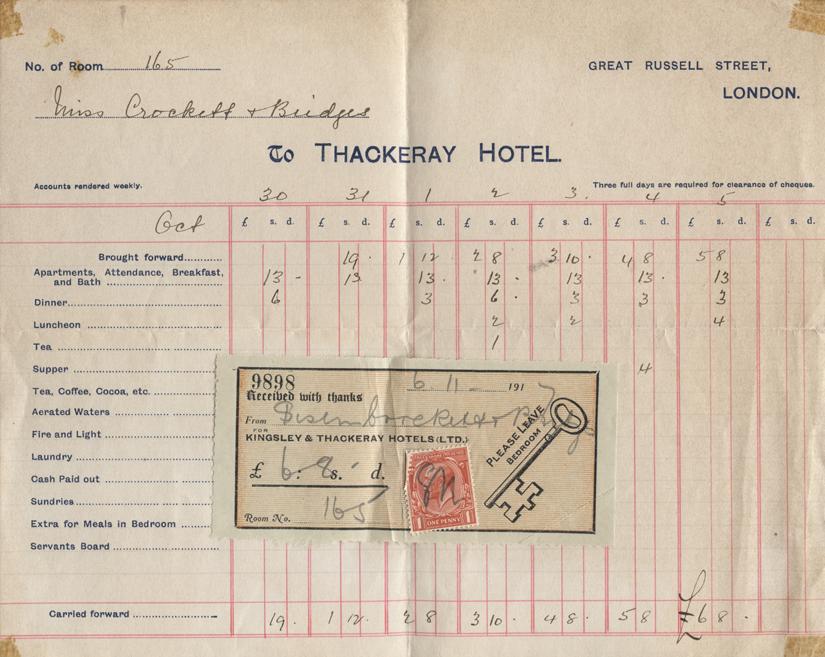 No. of Room 165
GREAT RUSSELL STREET,
LONDON.
Miss Crockett + Bridges
To THACKERAY HOTEL.
Accounts rendered weekly.
Three full days are required for clearance of cheques.
30 31 1 2 3. 4 5
Oct £ s. d. £ s. d. £ s. d. £ s. d. £ s. d. £ s. d. £ s. d. £ s. d.
Brought forward 19 . 1 12 2 8 3 10 . 4 8 5 8
Apartments, Attendance, Breakfast,
and Bath 13 - 13 13 . 13 . 13 13 . 13
Dinner 6 3 6 . 3 3 3
Luncheon 2 2 4
Tea 1
Supper 4
Tea, Coffee, Cocoa, etc.
Aerated Waters
Fire and Light
Laundry
Cash Paid out
Sundries
Extra for Meals in Bedroom
Servants Board
9898
Received with thanks
6 11 - 1917
From
FOR
KINGSLEY & THACKERAY HOTELS (LTD.)
£ 6: 8s. d.
Room No. 165
PLEASE LEAVE
BEDROOM
1 ONE PENNY 1
Carried forward 19 . 1 12 . 2 8 3 10 . 4 8 . 5 8 £6 8 .